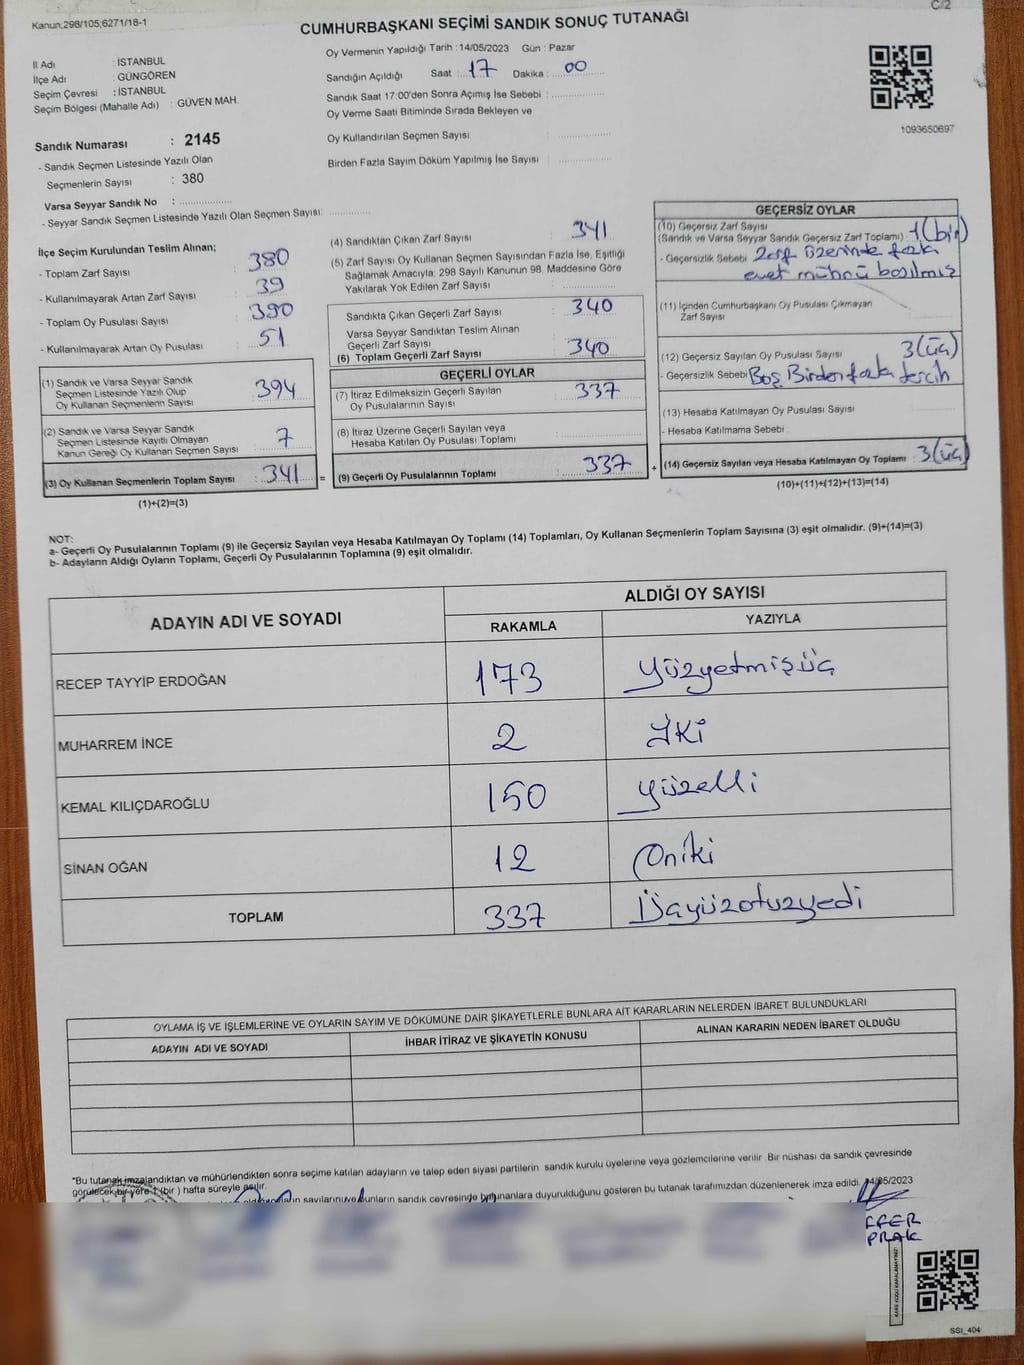 Kanun;298/105;6271/18-1
C/2
CUMHURBAŞKANI SEÇİMİ SANDIK SONUÇ TUTANAĞI
İl Adı : İSTANBUL
İlçe Adı : GÜNGÖREN
Seçim Çevresi : İSTANBUL
Seçim Bölgesi (Mahalle Adı) : GÜVEN MAH.
Oy Vermenin Yapıldığı Tarih : 14/05/2023 Gün : Pazar
Sandığın Açıldığı Saat : 17 Dakika : 00
Sandık Saat 17:00'den Sonra Açımış İse Sebebi :
Oy Verme Saati Bitiminde Sırada Bekleyen ve
Oy Kullandırılan Seçmen Sayısı
Birden Fazla Sayım Döküm Yapılmış İse Sayısı
1093650697
Sandık Numarası : 2145
- Sandık Seçmen Listesinde Yazılı Olan
Seçmenlerin Sayısı : 380
Varsa Seyyar Sandık No :
- Seyyar Sandık Seçmen Listesinde Yazılı Olan Seçmen Sayısı:
İlçe Seçim Kurulundan Teslim Alınan;
- Toplam Zarf Sayısı : 380
- Kullanılmayarak Artan Zarf Sayısı : 39
- Toplam Oy Pusulası Sayısı : 390
- Kullanılmayarak Artan Oy Pusulası : 51
(1) Sandık ve Varsa Seyyar Sandık
Seçmen Listesinde Yazılı Olup
Oy Kullanan Seçmenlerin Sayısı : 394
(2) Sandık ve Varsa Seyyar Sandık
Seçmen Listesinde Kayıtlı Olmayan
Kanun Gereği Oy Kullanan Seçmen Sayısı : 7
(3) Oy Kullanan Seçmenlerin Toplam Sayısı : 341 =
(1)+(2)=(3)
(4) Sandıktan Çıkan Zarf Sayısı : 341
(5) Zarf Sayısı Oy Kullanan Seçmen Sayısından Fazla İse, Eşitliği
Sağlamak Amacıyla; 298 Sayılı Kanunun 98. Maddesine Göre
Yakılarak Yok Edilen Zarf Sayısı :
Sandıkta Çıkan Geçerli Zarf Sayısı : 340
Varsa Seyyar Sandıktan Teslim Alınan
Geçerli Zarf Sayısı :
(6) Toplam Geçerli Zarf Sayısı : 340
GEÇERLİ OYLAR
(7) İtiraz Edilmeksizin Geçerli Sayılan
Oy Pusulalarının Sayısı : 337
(8) İtiraz Üzerine Geçerli Sayılan veya
Hesaba Katılan Oy Pusulası Toplamı :
(9) Geçerli Oy Pusulalarının Toplamı : 337 +
GEÇERSİZ OYLAR
(10) Geçersiz Zarf Sayısı
(Sandık ve Varsa Seyyar Sandık Geçersiz Zarf Toplamı) : 1(bir)
- Geçersizlik Sebebi : Zarf üzerinde fazla
evet mührü basılmış
(11) İçinden Cumhurbaşkanı Oy Pusulası Çıkmayan
Zarf Sayısı
(12) Geçersiz Sayılan Oy Pusulası Sayısı : 3(üç)
- Geçersizlik Sebebi Boş Birden fazla tercih
(13) Hesaba Katılmayan Oy Pusulası Sayısı
- Hesaba Katılmama Sebebi
(14) Geçersiz Sayılan veya Hesaba Katılmayan Oy Toplamı : 3(üç)
(10)+(11)+(12)+(13)=(14)
NOT:
a- Geçerli Oy Pusulalarının Toplamı (9) ile Geçersiz Sayılan veya Hesaba Katılmayan Oy Toplamı (14) Toplamları, Oy Kullanan Seçmenlerin Toplam Sayısına (3) eşit olmalıdır. (9)+(14)=(3)
b- Adayların Aldığı Oyların Toplamı, Geçerli Oy Pusulalarının Toplamına (9) eşit olmalıdır.
ADAYIN ADI VE SOYADI ALDIĞI OY SAYISI
RAKAMLA YAZIYLA
RECEP TAYYİP ERDOĞAN 173 Yüzyetmişüç
MUHARREM İNCE 2 İki
KEMAL KILIÇDAROĞLU 150 Yüzelli
SİNAN OĞAN 12 Oniki
TOPLAM 337 Üçyüzotuzyedi
OYLAMA İŞ VE İŞLEMLERİNE VE OYLARIN SAYIM VE DÖKÜMÜNE DAİR ŞİKAYETLERLE BUNLARA AİT KARARLARIN NELERDEN İBARET BULUNDUKLARI
ADAYIN ADI VE SOYADI İHBAR İTİRAZ VE ŞİKAYETİN KONUSU ALINAN KARARIN NEDEN İBARET OLDUĞU
*Bu tutanak imzalandıktan ve mühürlendikten sonra seçime katılan adayların ve talep eden siyasi partilerin sandık kurulu üyelerine veya gözlemcilerine verilir. Bir nüshası da sandık çevresinde
görülecek bir yere 1 (bir) hafta süreyle asılır.
sayılarını ve bunların sandık çevresinde bulunanlara duyurulduğunu gösteren bu tutanak tarafımızdan düzenlenerek imza edildi. 14/05/2023
FFER
PRAK
SSI_404